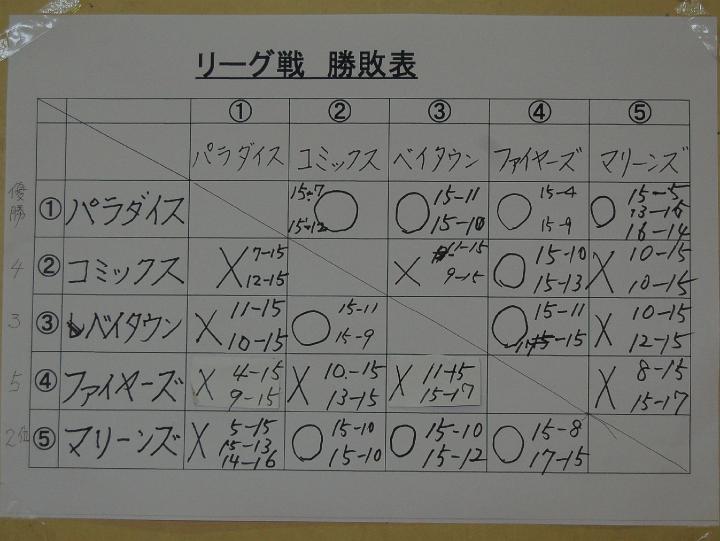 リーグ戦 勝敗表
① ② ③ ④ ⑤
パラダイス コミックス ベイタウン ファイヤーズ マリーンズ
優勝 ① パラダイス 15-7 15-12 ○ ○ 15-11 15-10 ○ 15-4 15-9 ○ 15-5 13-15 16-14
4 ② コミックス × 7-15 12-15 × 11-15 9-15 ○ 15-10 15-13 × 10-15 10-15
3 ③ ベイタウン × 11-15 10-15 ○ 15-11 15-9 ○ 15-11 17-15 × 10-15 12-15
5 ④ ファイヤーズ × 4-15 9-15 × 10-15 13-15 × 11-15 15-17 × 8-15 15-17
2位 ⑤ マリーンズ × 5-15 15-13 14-16 ○ 15-10 15-10 ○ 15-10 15-12 ○ 15-8 17-15